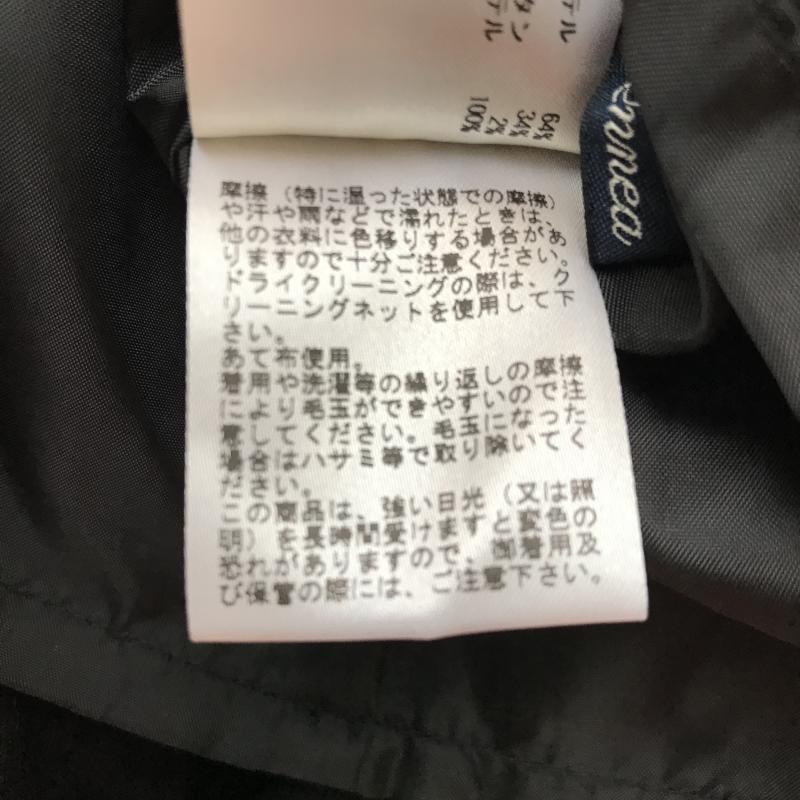 テル
タン
テル
64%
34%
2%
100%
摩擦（特に湿った状態での摩擦）
や汗や雨などで濡れたときは、
他の衣料に色移りする場合があ
りますので十分ご注意ください。
ドライクリーニングの際は、ク
リーニングネットを使用して下
さい。
あて布使用。
着用や洗濯等の繰り返しの摩擦
により毛玉ができやすいので注
意してください。毛玉になった
場合はハサミ等で取り除いてく
ださい。
この商品は、強い日光（又は照
明）を長時間受けますと変色の
恐れがありますので、御着用及
び保管の際には、ご注意下さい。
nmea